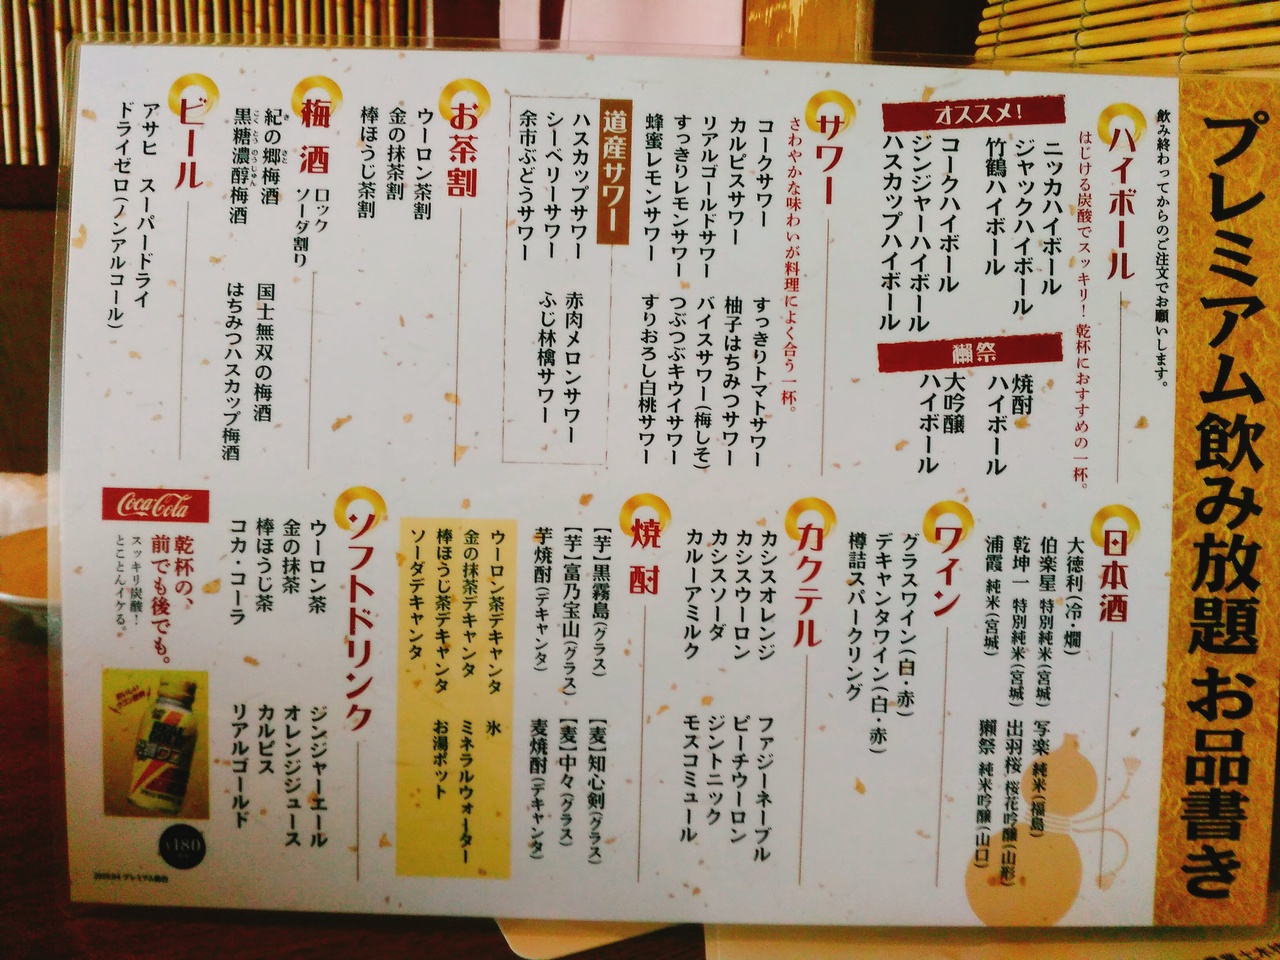 プレミアム飲み放題 お品書き
飲み終わってからのご注文でお願いします。
ハイボール
はじける炭酸でスッキリ！乾杯におすすめの一杯。
オススメ！
ニッカハイボール
ジャックハイボール
竹鶴ハイボール
コークハイボール
ジンジャーハイボール
ハスカップハイボール
獺祭
焼酎
ハイボール
大吟醸
ハイボール
サワー
さわやかな味わいが料理によく合う一杯。
コークサワー
カルピスサワー
リアルゴールドサワー
すっきりレモンサワー
蜂蜜レモンサワー
すっきりトマトサワー
柚子はちみつサワー
バイスサワー(梅しそ)
つぶつぶキウイサワー
すりおろし白桃サワー
道産サワー
ハスカップサワー
シーベリーサワー
余市ぶどうサワー
赤肉メロンサワー
ふじ林檎サワー
お茶割
ウーロン茶割
金の抹茶割
棒ほうじ茶割
梅酒 ロック
ソーダ割り
紀の郷梅酒
黒糖濃醇梅酒
国士無双の梅酒
はちみつハスカップ梅酒
ビール
アサヒ スーパードライ
ドライゼロ(ノンアルコール)
日本酒
大徳利(冷・燗)
伯楽星 特別純米(宮城)
乾坤一 特別純米(宮城)
浦霞 純米(宮城)
写楽 純米(福島)
出羽桜 桜花吟醸(山形)
獺祭 純米吟醸(山口)
ワイン
グラスワイン(白・赤)
デキャンタワイン(白・赤)
樽詰スパークリング
カクテル
カシスオレンジ
カシスウーロン
カシスソーダ
カルーアミルク
ファジーネーブル
ピーチウーロン
ジントニック
モスコミュール
焼酎
【芋】黒霧島(グラス)
【芋】富乃宝山(グラス)
芋焼酎(デキャンタ)
【麦】知心剣(グラス)
【麦】中々(グラス)
麦焼酎(デキャンタ)
ウーロン茶デキャンタ
金の抹茶デキャンタ
棒ほうじ茶デキャンタ
ソーダデキャンタ
氷
ミネラルウォーター
お湯ポット
ソフトドリンク
ウーロン茶
金の抹茶
棒ほうじ茶
コカ・コーラ
ジンジャーエール
オレンジジュース
カルピス
リアルゴールド
Coca-Cola
乾杯の、
前でも後でも。
スッキリ炭酸！
とことんイケる。
¥180